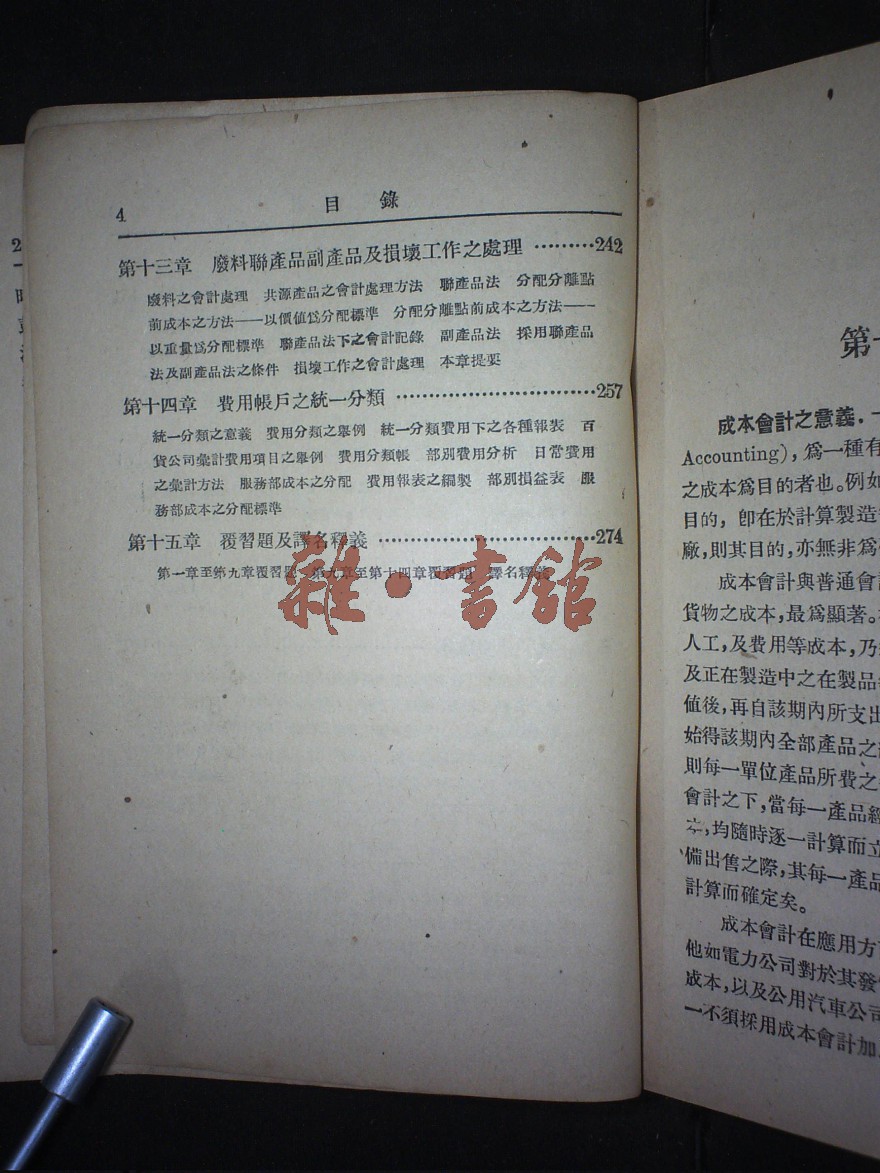 4
目錄
第十三章 廢料聯產品副產品及損壞工作之處理 ………242
廢料之會計處理 共源產品之會計處理方法 聯產品法 分配分離點
前成本之方法——以價值爲分配標準 分配分離點前成本之方法——
以重量爲分配標準 聯產品法下之會計記錄 副產品法 採用聯產品
法及副產品法之條件 損壞工作之會計處理 本章提要
第十四章 費用帳戶之統一分類 ………………………257
統一分類之意義 費用分類之舉例 統一分類費用下之各種報表 百
貨公司彙計費用項目之舉例 費用分類帳 部別費用分析 日常費用
之彙計方法 服務部成本之分配 費用報表之編製 部別損益表 服
務部成本之分配標準
第十五章 覆習題及譯名釋義 ………………………274
第一章至第九章覆習題 第九章至第十四章覆習題 譯名釋義
雜·書館
第
成本會計之意義.
Accounting),爲一種有
之成本爲目的者也。例如
目的, 卽在於計算製造
廠,則其目的,亦無非爲
成本會計與普通會計
貨物之成本,最爲顯著。
人工,及費用等成本,乃
及正在製造中之在製品
値後,再自該期內所支出
始得該期內全部產品之
則每一單位產品所費之
會計之下,當每一產品經
本,均隨時逐一計算而立
備出售之際,其每一產品
計算而確定矣。
成本會計在應用方
他如電力公司對於其發
成本,以及公用汽車公司
一不須採用成本會計加